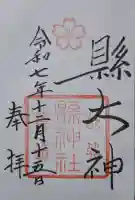 縣大神
令和七年十二月十五日
奉拝
縣神社